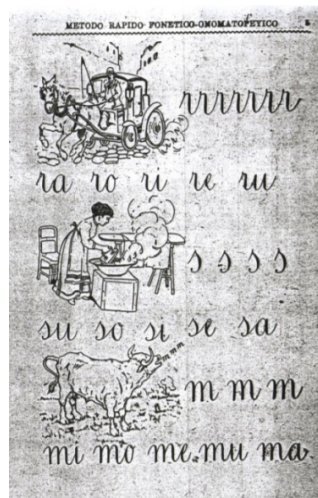 METODO RAPIDO FONETICO-ONOMATOPEYICO 5
rrrrrrr
ra ro ri re ru
s s s s
su so si se sa
m m m
m m m
mi mo me mu ma